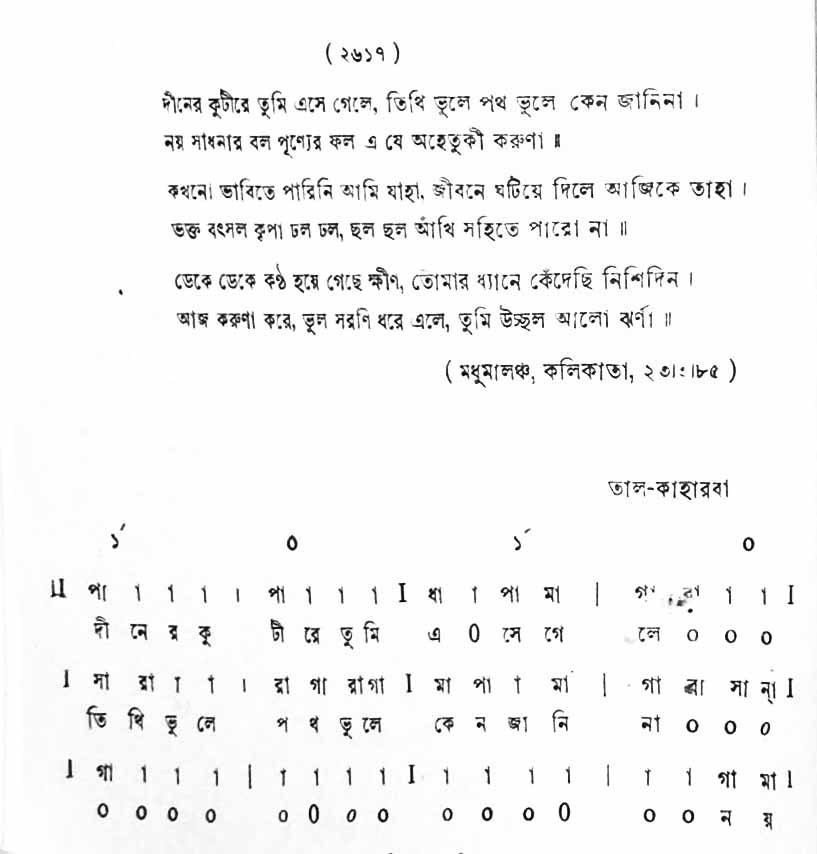 ( ২৬১৭ )
দীনের কুটীরে তুমি এসে গেলে, তিথি ভূলে পথ ভূলে কেন জানিনা ।
নয় সাধনার বল পূণ্যের ফল এ যে অহেতুকী করুণা ॥
কখনো ভাবিতে পারিনি আমি যাহা, জীবনে ঘটিয়ে দিলে আজিকে তাহা ।
ভক্ত বৎসল কৃপা ঢল ঢল, ছল ছল আঁখি সহিতে পারো না ॥
ডেকে ডেকে কণ্ঠ হয়ে গেছে ক্ষীণ, তোমার ধ্যানে কেঁদেছি নিশিদিন ।
আজ করুণা করে, ভুল সরণি ধরে এলে, তুমি উচ্ছল আলো ঝর্ণা ॥
( মধুমালঞ্চ, কলিকাতা, ২৩।১।৮৫ )
তাল-কাহারবা
১´ ০ ১´ ০
II পা া া া । পা া া া I ধা া পা মা | গা রা া া I
দী নে র কু টী রে তু মি এ ০ সে গে লে ০ ০ ০
I সা রা া া । রা গা রা গা I মা পা া মা | গা রা সা ন্া I
তি থি ভূ লে প থ ভূ লে কে ন জা নি না ০ ০ ০
I গা া া া | া া া া I া া া া | া া গা মা I
০ ০ ০ ০ ০ ০ ০ ০ ০ ০ ০ ০ ০ ০ ন য়